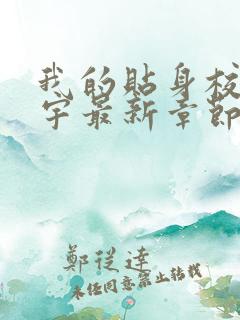 我的贴身校
宇最新章節
鄭從達
未经同意禁止转载